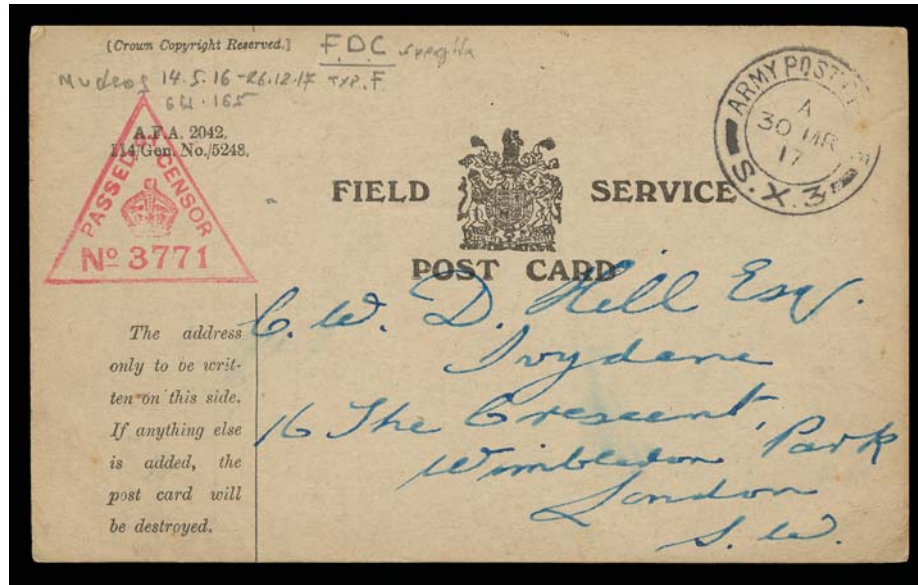 [Crown Copyright Reserved.]
F.D.C
Mudros 14.5.16-26.12.17 TYP.F
165
A.F.A. 2042.
114/Gen. No./5248.
PASSED CENSOR
Nº 3771
ARMY POST
A
30 MR
17
S.X.3
FIELD SERVICE
POST CARD
The address
only to be writ-
ten on this side.
If anything else
is added, the
post card will
be destroyed.
C. W. D. Hill Esq.
Ivydene
16 The Crescent,
Wimbledon Park
London
S. W.